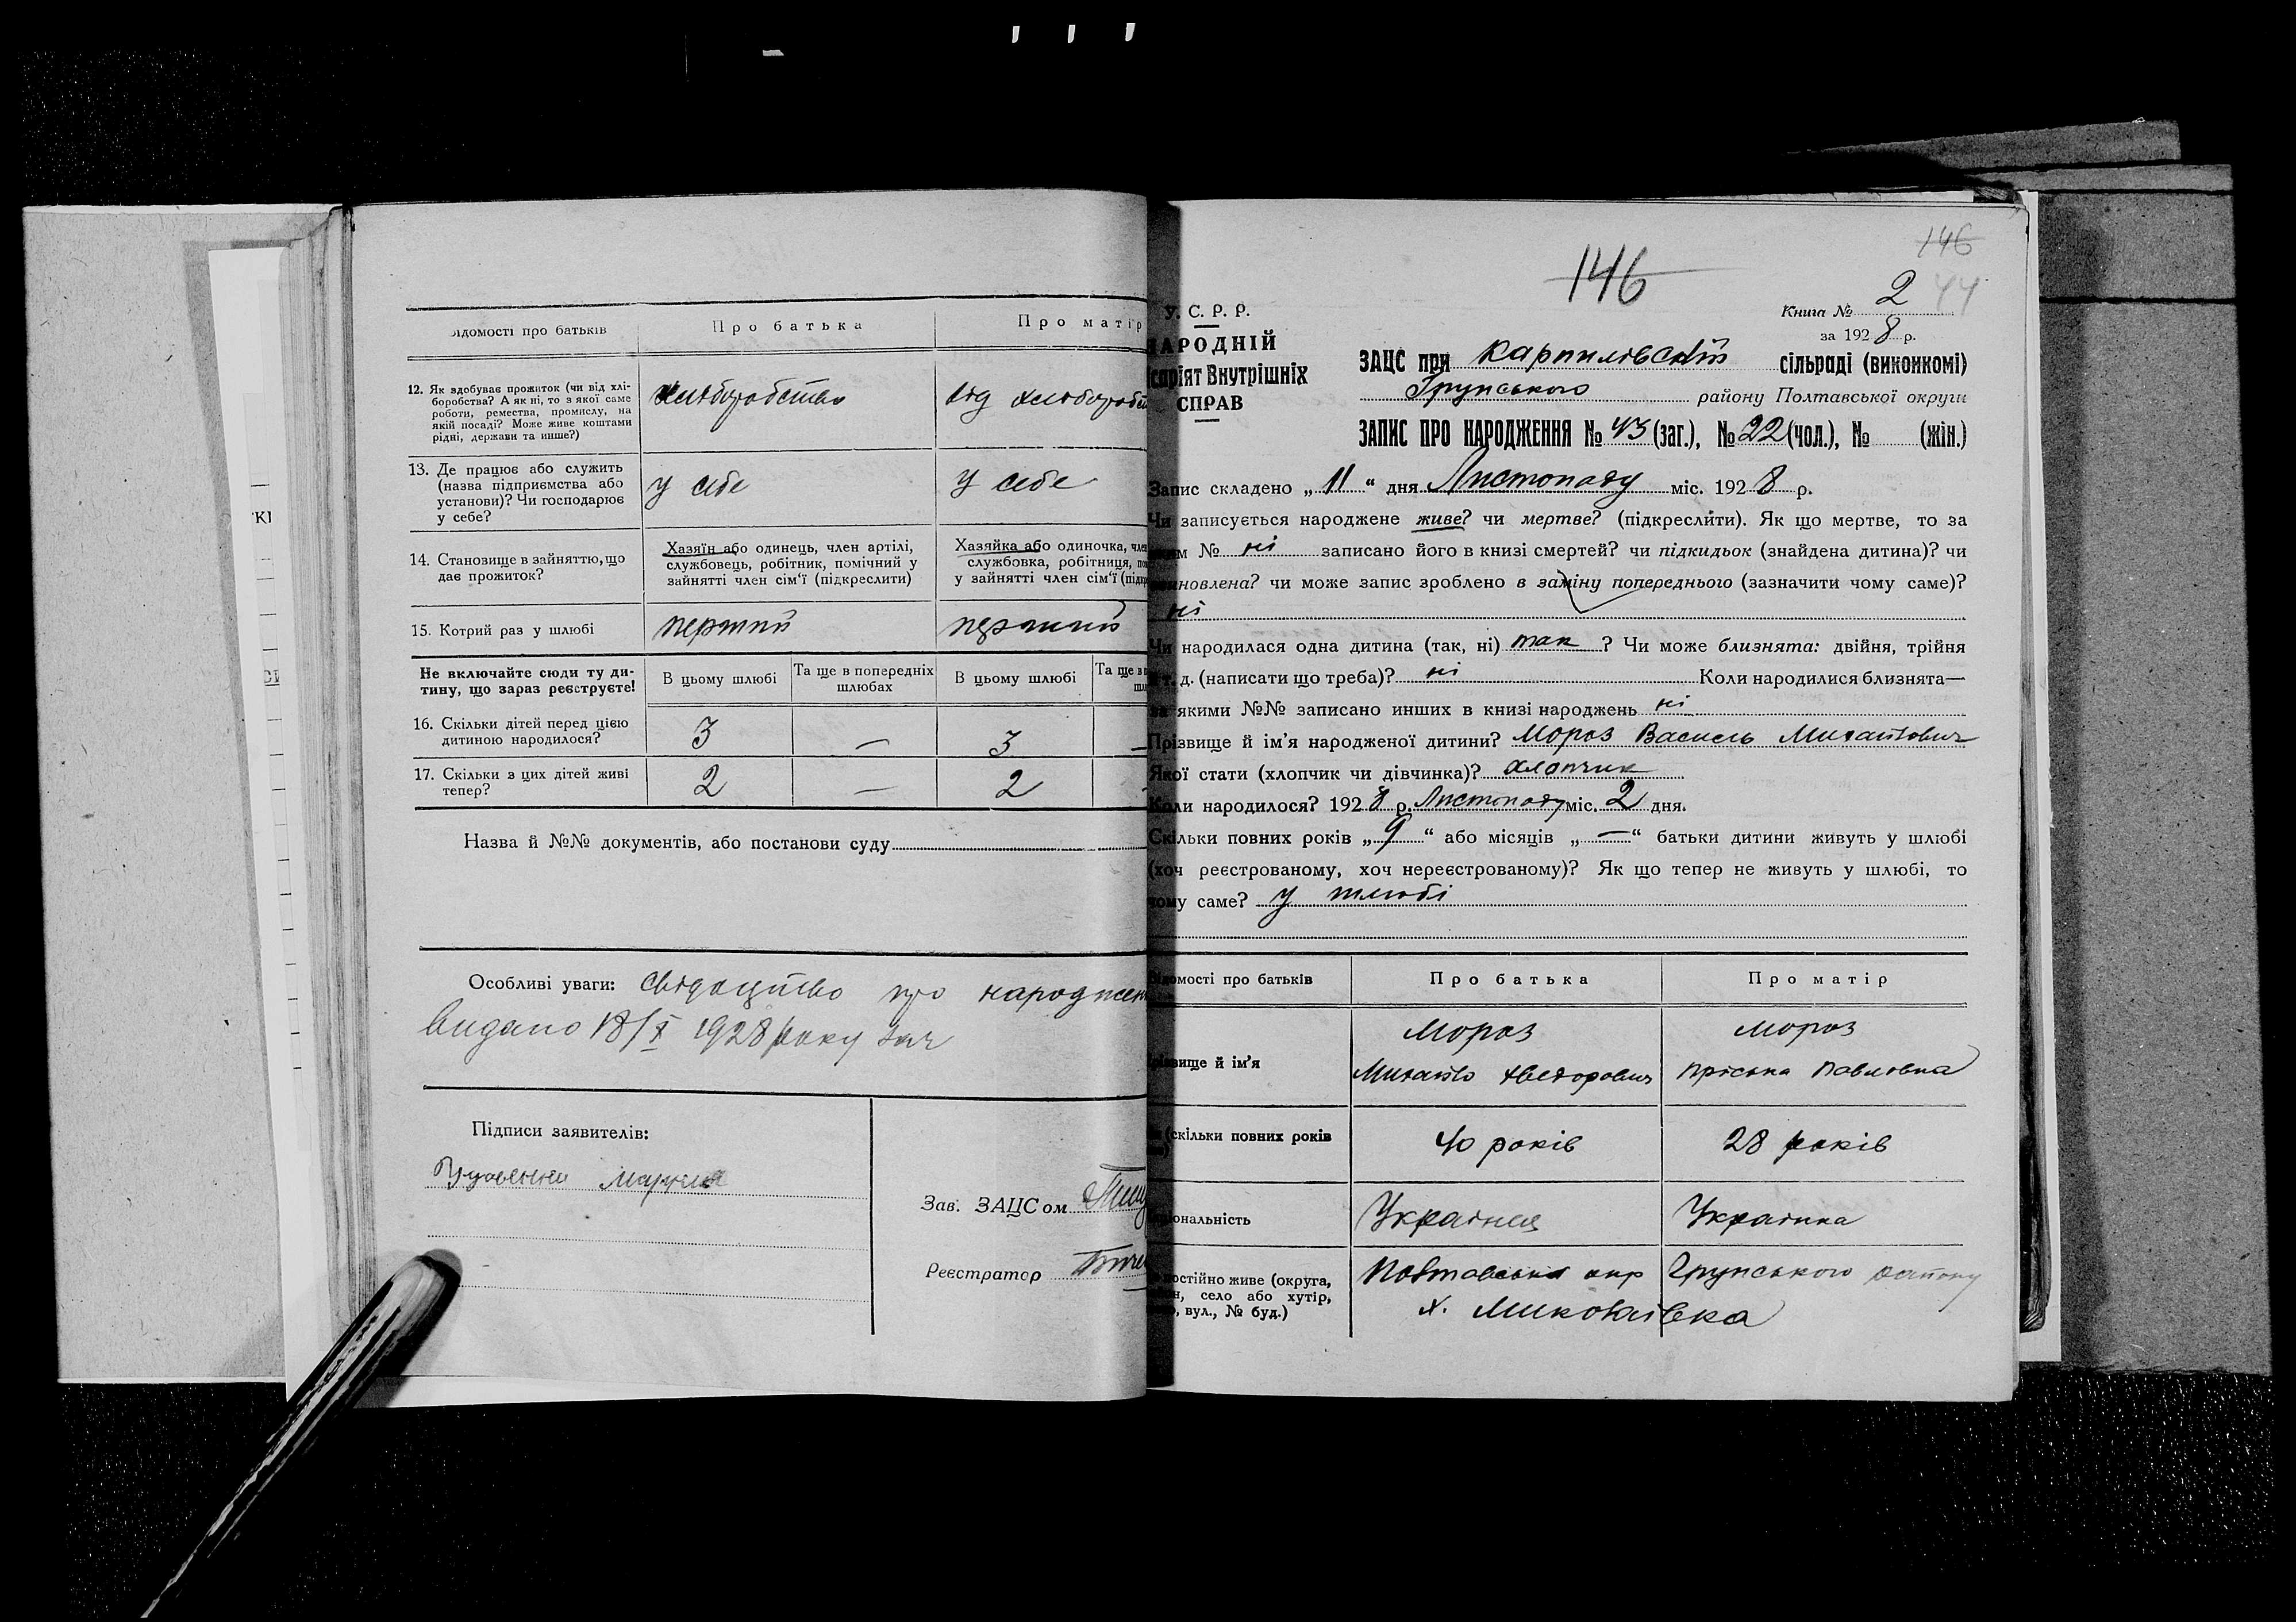 Відомості про батьків
Про батька
Про матір
12. Як здобуває прожиток (чи від хлі-
боробства? А як ні, то з якої саме
роботи, ремества, промислу, на
якій посаді? Може живе коштами
рідні, держави та инше?)
хліборобство
від хлібороб
13. Де працює або служить
(назва підприємства або
установи)? Чи господарює
у себе?
у себе
у себе
14. Становище в зайняттю, що
дає прожиток?
Хазяїн або одинець, член артілі,
службовець, робітник, помічний у
зайнятті член сім'ї (підкреслити)
Хазяйка або одиночка, член
службовка, робітниця, по
у зайнятті член сім'ї (підк
15. Котрий раз у шлюбі
перший
перший
Не включайте сюди ту ди-
тину, що зараз реєструєте!
В цьому шлюбі
Та ще в попередніх
шлюбах
В цьому шлюбі
Та ще в п
шл
16. Скільки дітей перед цією
дитиною народилося?
3
—
3
—
17. Скільки з цих дітей живі
тепер?
2
—
2
Назва й №№ документів, або постанови суду
Особливі уваги: свідоцтво про народжен
видано 18/X 1928 року
Підписи заявителів:
Зав. ЗАЦСом
Реєстратор
146
146
44
У. С. Р. Р.
НАРОДНІЙ
ісаріят Внутрішніх
СПРАВ
Книга № 2
за 1928 р.
ЗАЦС при Карпилівскій сільраді (виконкомі)
Грунського району Полтавської округи
ЗАПИС ПРО НАРОДЖЕННЯ № 43 (заг.), № 22 (чол.), № (жін.)
Запис складено „11“ дня Листопаду міс. 1928 р.
Чи записується народжене живе? чи мертве? (підкреслити). Як що мертве, то за
яким № ні записано його в книзі смертей? чи підкидьок (знайдена дитина)? чи
новлена? чи може запис зроблено в заміну попереднього (зазначити чому саме)?
ні
Чи народилася одна дитина (так, ні) так ? Чи може близнята: двійня, трійня
й т. д. (написати що треба)? ні Коли народилися близнята—
за якими №№ записано инших в книзі народжень ні
Прізвище й ім'я народженої дитини? Мороз Василь Михайлович
Якої стати (хлопчик чи дівчинка)? хлопчик
Коли народилося? 1928 р. Листопаду міс. 2 дня.
Скільки повних років „9“ або місяців „—“ батьки дитини живуть у шлюбі
(хоч реєстрованому, хоч нереєстрованому)? Як що тепер не живуть у шлюбі, то
чому саме? у шлюбі
Відомості про батьків
Про батька
Про матір
Прізвище й ім'я
Мороз
Михайло Хведорович
Мороз
Пріська Павловна
(скільки повних років
40 років
28 років
ціональність
Українец
Українка
постійно живе (округа,
н, село або хутір,
вул., № буд.)
Полтавська окр Грунського району
х. Миколаївка